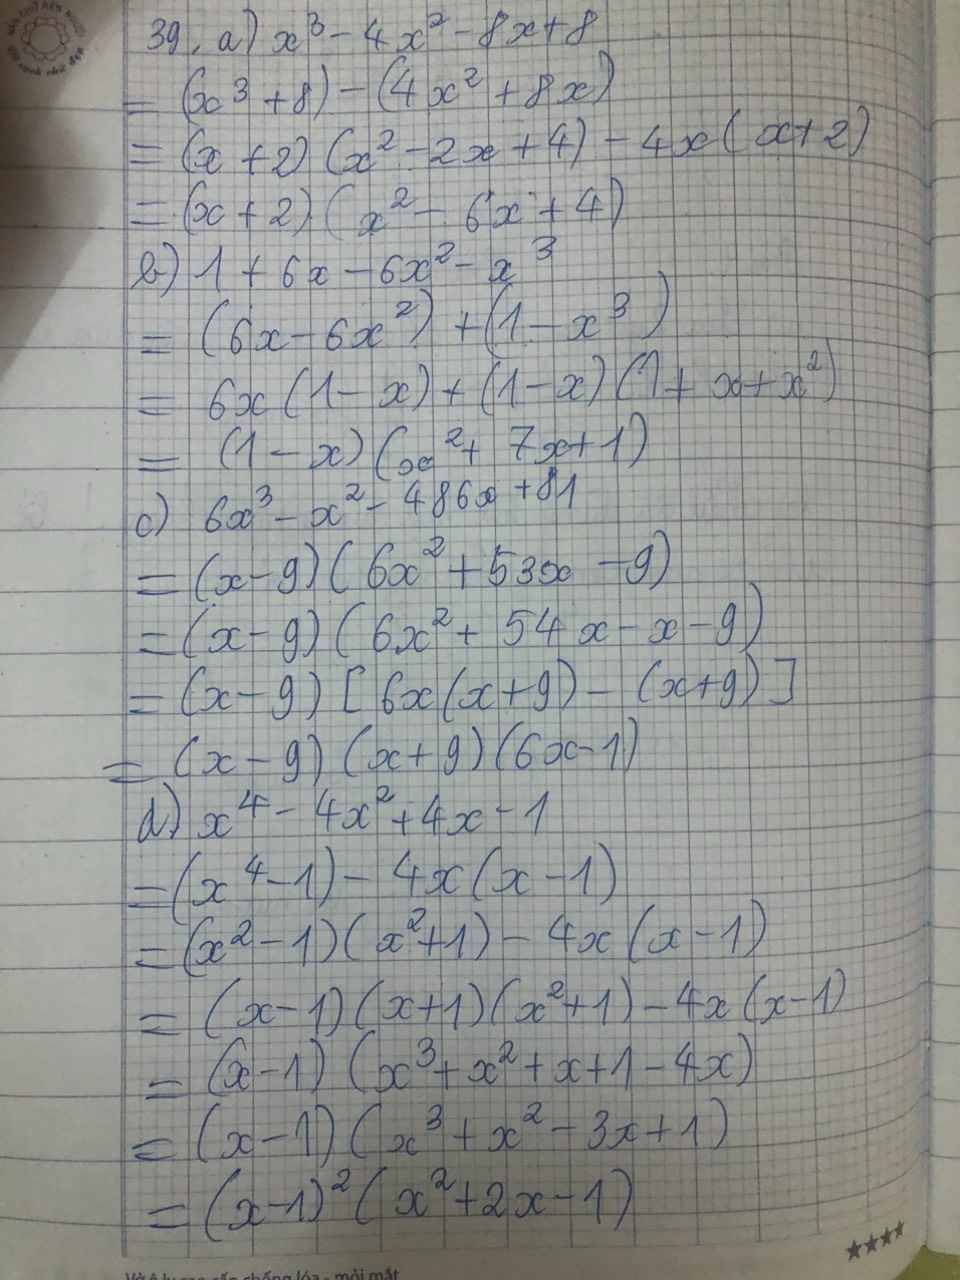 39. a) x³ - 4x² - 8x + 8
= (x³ + 8) - (4x² + 8x)
= (x + 2) (x² - 2x + 4) - 4x (x + 2)
= (x + 2) (x² - 6x + 4)
b) 1 + 6x - 6x² - x³
= (6x - 6x²) + (1 - x³)
= 6x (1 - x) + (1 - x) (1 + x + x²)
= (1 - x) (x² + 7x + 1)
c) 6x³ - x² - 486x + 81
= (x - 9) (6x² + 53x - 9)
= (x - 9) (6x² + 54x - x - 9)
= (x - 9) [6x (x + 9) - (x + 9)]
= (x - 9) (x + 9) (6x - 1)
d) x⁴ - 4x² + 4x - 1
= (x⁴ - 1) - 4x (x - 1)
= (x² - 1) (x² + 1) - 4x (x - 1)
= (x - 1) (x + 1) (x² + 1) - 4x (x - 1)
= (x - 1) (x³ + x² + x + 1 - 4x)
= (x - 1) (x³ + x² - 3x + 1)
= (x - 1)² (x² + 2x - 1)